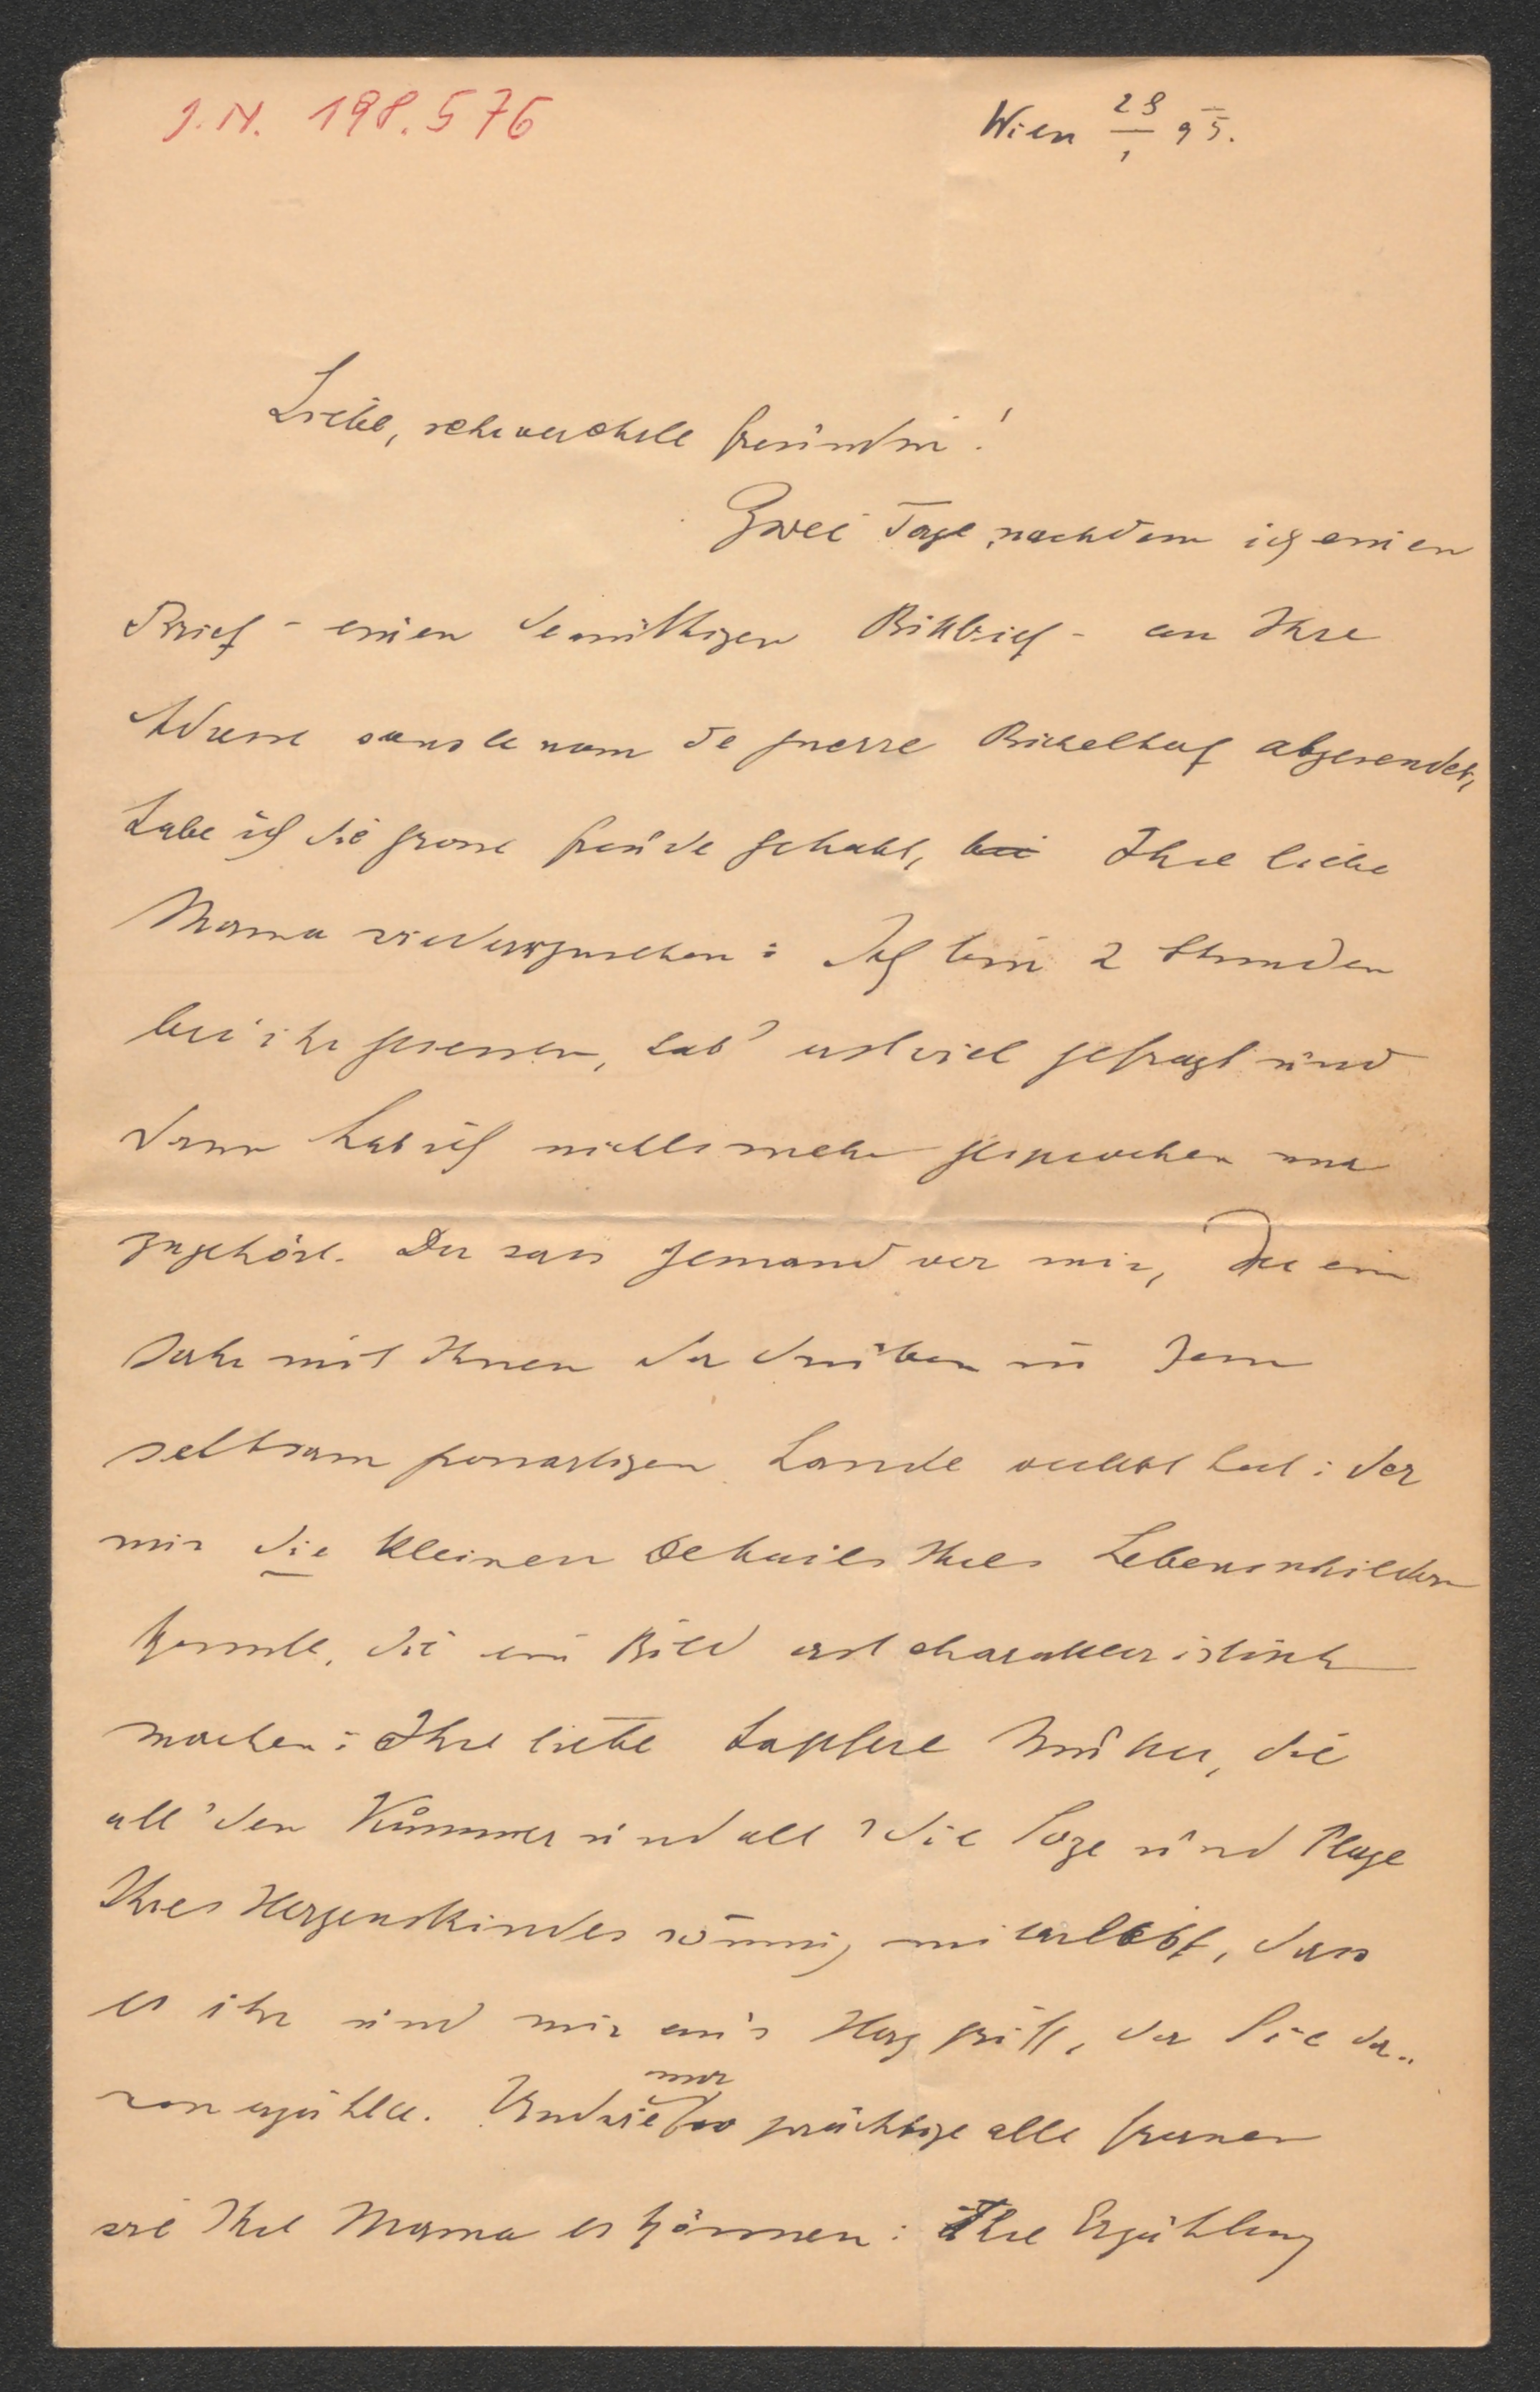 J.N. 198.576
Wien 28/1 95.
Liebe, sehr verehrte Freundin!
Zwei Tage, nachdem ich einen
Brief - einen demüthigen Bittbrief - an Ihre
Adresse sans le nom de guerre abgesendet,
habe ich die grosse Freude gehabt, bei Ihre liebe
Mama wiederzusehen: Ich bin 2 Stunden
bei ihr gesessen, hab' erst viel gefragt und
dann hab ich nichts mehr gesprochen nur
zugehört. Da sass Jemand vor mir, der ein
Jahr mit Ihnen da drüben in dem
seltsam Lande verlebt hat: der
mir die kleinen Details Ihres Lebens schildern
konnte, die ein Bild erst charakteristisch
machen: Ihre liebe tapfere Mutter, die
all' den Kummer und all' die Sorge und Plage
Ihres Herzenskindes so innig miterlebt, dass
es ihr und mir an's Herz griff, da Sie da-
von erzählte. Und wie nur so prächtige alte Frauen
wie Ihre Mama es können: Ihre Erzählung